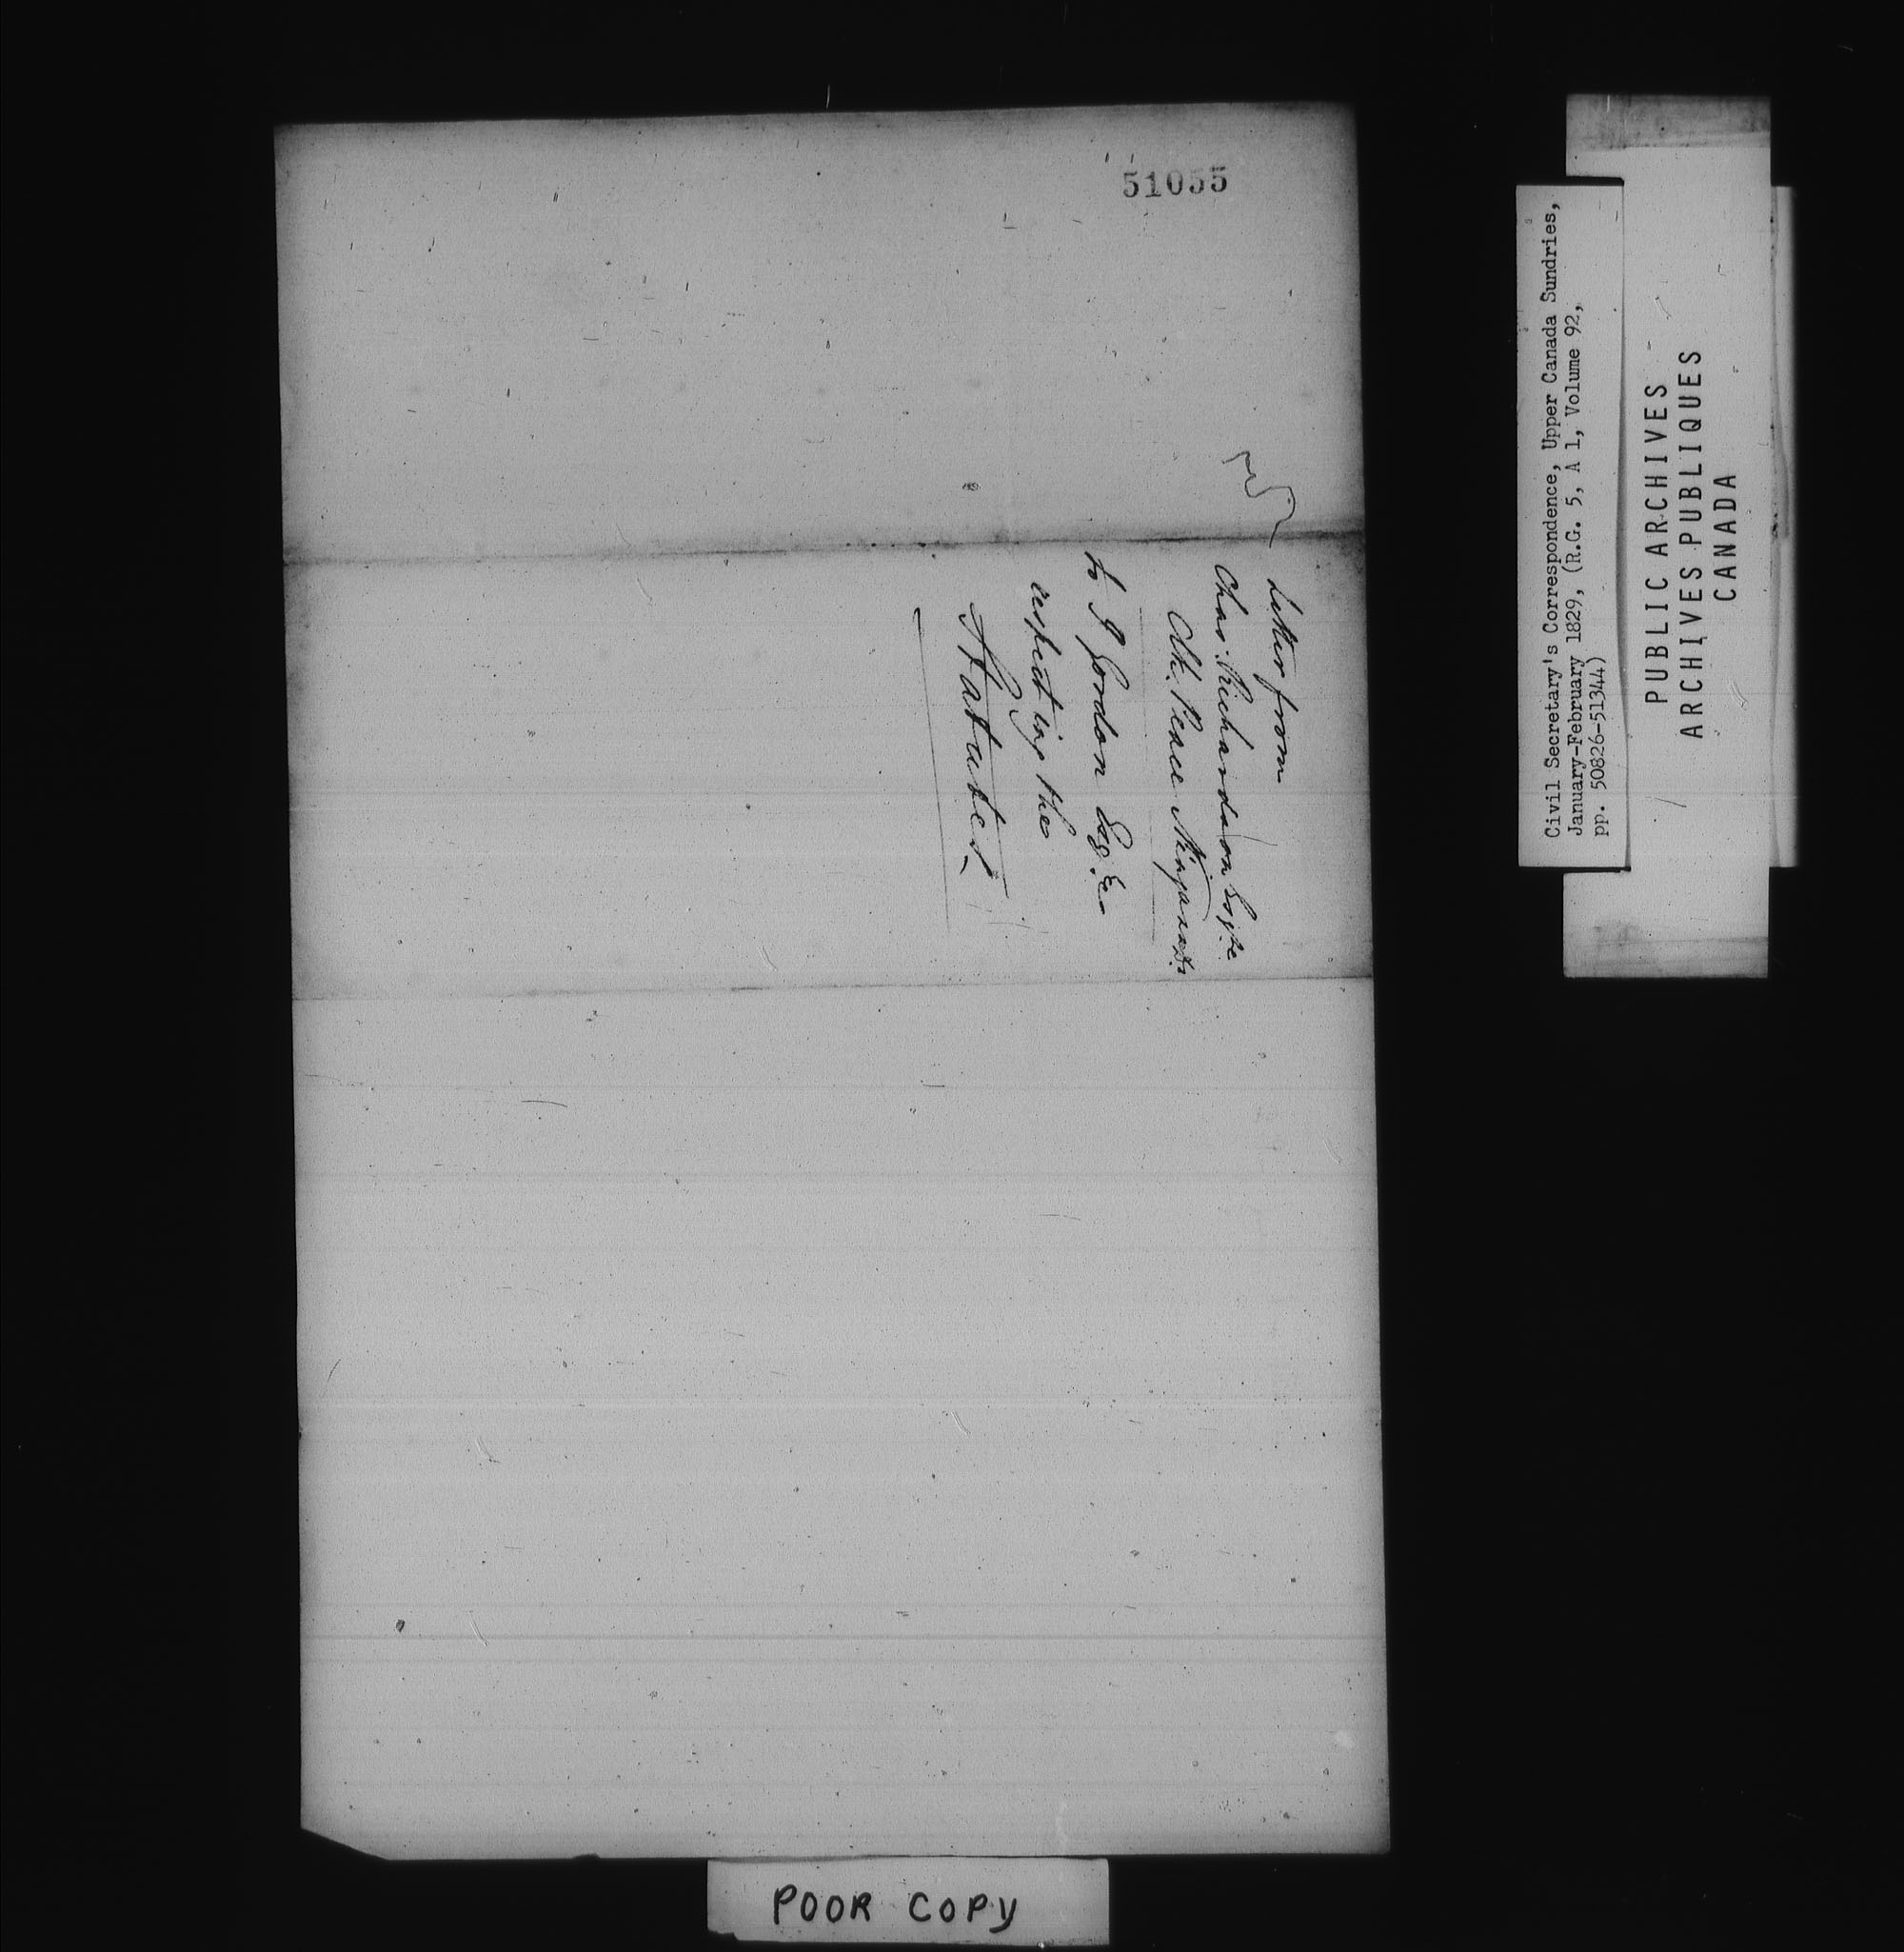 51055
Letter from
Chas. Richardson Esqre
Clk. Peace Niagara Dt.
to J Gordon Esqre
respecting the
Statutes
Civil Secretary's Correspondence, Upper Canada Sundries,
January-February 1829, (R.G. 5, A 1, Volume 92,
pp. 50826-51344)
PUBLIC ARCHIVES
ARCHIVES PUBLIQUES
CANADA
POOR COPY